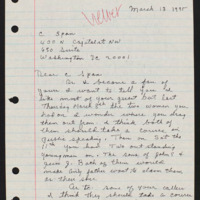 Viewer
March 13, 1995
C Span
400 N Capitolst NW
650 Suite
Washington DC 20001
Dear C Span
As I become a fan of
yours I want to tell you I
like most of your guest but last
Thursday March 9th the two women you
had on & wonder where you drag
them out from. I think both of
them should take a course on
public speaking. Then on Sat the
11th you had two out standing
young men on. The sons of John &
Jean J. Both of them would
make any father want to claim them
as their
As to some of your callers
I think they should take a course